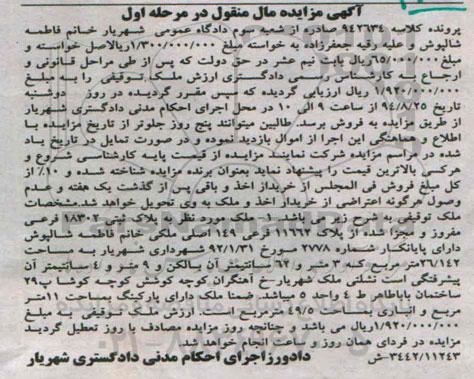 آگهی مزایده مال منقول در مرحله اول
پرونده کلاسه ۹۴۲۶۳۴ صادره از شعبه سوم دادگاه عمومی شهریار خانم فاطمه
شالپوش و علیه رقیه جعفرزاده به خواسته مبلغ ۱/۳۰۰/۰۰۰/۰۰۰ریالاصل خواسته و
مبلغ ۶۵/۰۰۰/۰۰۰ریال بابت نیم عشر در حق دولت که پس از طی مراحل قانونی و
ارجاع به کارشناس رسمی دادگستری ارزش ملک توقیفی را به مبلغ
۱/۹۲۰/۰۰۰/۰۰۰ ریال ارزیابی گردیده که سپس مقرر گردیده در روز دوشنبه
تاریخ ۹۴/۸/۲۵ از ساعت ۹ الی ۱۰ در محل اجرای احکام مدنی دادگستری شهریار
از طریق مزایده به فروش برسد. طالبین میتوانند پنج روز جلوتر از تاریخ مزایده با
اطلاع و هماهنگی این اجرا از اموال بازدید نموده و در صورت تمایل در تاریخ یاد
شده در مراسم مزایده شرکت نمایند مزایده از قیمت پایه کارشناسی شروع و
هرکس بالاترین قیمت را پیشنهاد نماید بعنوان برنده مزایده شناخته شده و ۱۰٪ از
کل مبلغ فروش فی المجلس از خریدار اخذ و باقی پس از گذشت یک هفته و عدم
وصول هرگونه اعتراضی از خریدار اخذ و ملک به وی تحویل خواهد شد.مشخصات
ملک توقیفی به شرح زیر می باشد. ۱_ ملک مورد نظر از پلاک ثبتی ۱۸۳۰۲ فرعی
مفروز و مجزا شده از پلاک ۱۱۶۶۲ فرعی ۱۴۹ اصلی ملکی خانم فاطمه شالپوش
دارای پایانکار شماره ۲۷۷۸ مورخ ۹۲/۱/۳۱ شهرداری شهریار به مساحت
۲۶/۱۴۲متر مربع که ۳ متر و ۶۲ سانتیمتر آن بالکن و ۹ متر و ۴ سانتیمتر آن
پیشرفتگی است نشانی ملک شهریار_خ آهنگران کوچه کوشش کوچه کوشا پ۲۹
ساختمان باباطاهر ط ۴ واحد ۵ میباشد. ضمنا ملک دارای پارکینگ بمساحت ۱۱متر
مربع و انباری بمساحت ۴۹/۵ مترمربع است. ارزش ملک توقیفی به مبلغ
۱/۹۲۰/۰۰۰/۰۰۰ریال می باشد و چنانچه روز مزایده مصادف با روز تعطیل گردید
مزایده در فردای همان روز و ساعت انجام خواهد شد.
۳۴۴۲/۱۱۲۴۳_ش دادورزاجرای احکام مدنی دادگستری شهریار